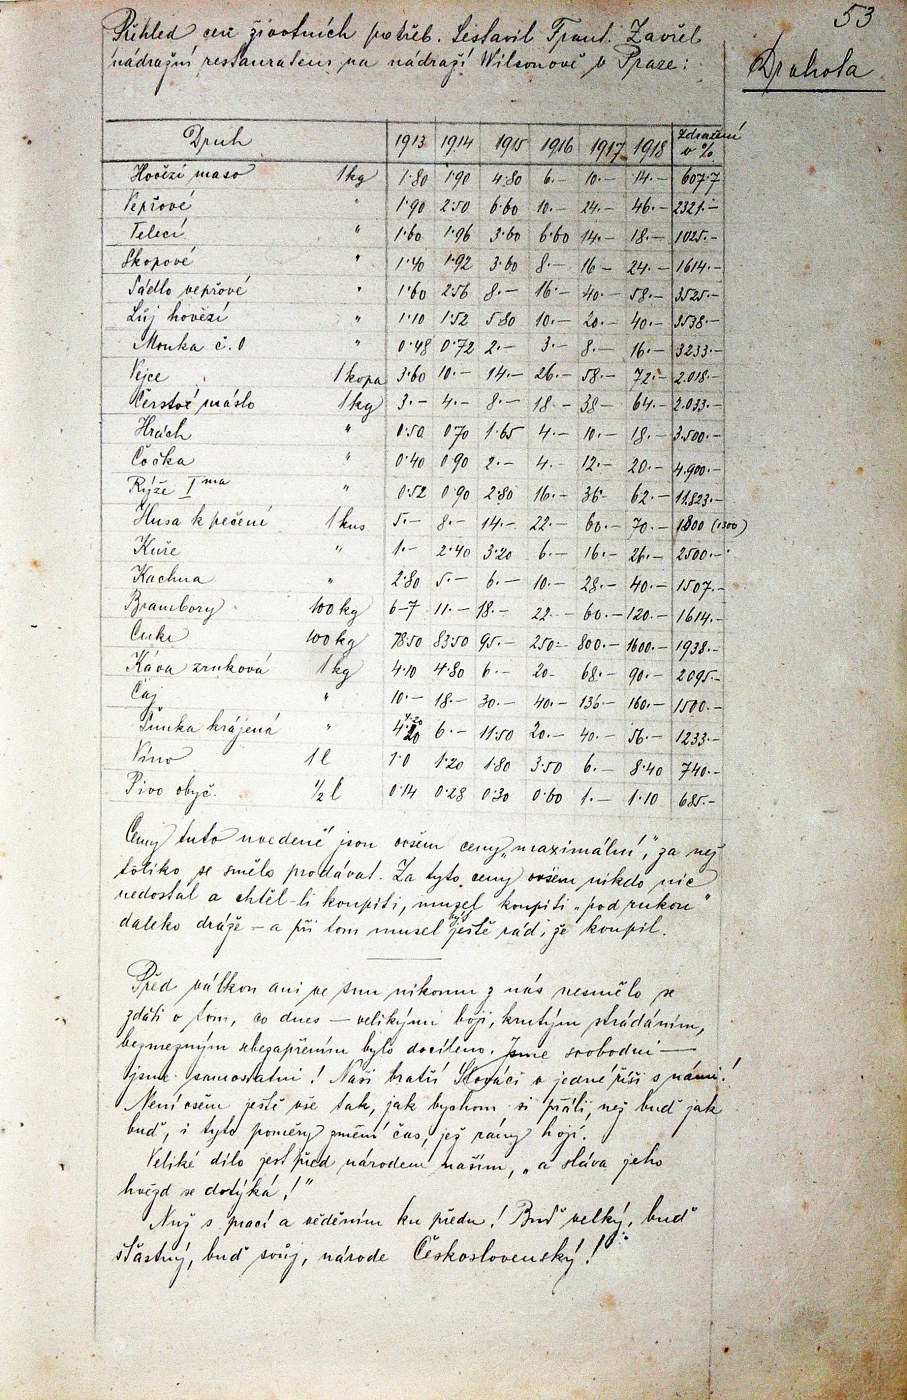 53
Přehled cen životních potřeb. Sestavil Frant. Zavřel
nádražní restauratém na nádraží Wilsonově v Praze:
Drahota
Druh 1913 1914 1915 1916 1917 1918 zdražení v %
Hovězí maso 1 kg 1·80 1·90 4·80 6·— 10·— 14·— 607·7
Vepřové " 1·90 2·50 6·60 10·— 24·— 46·— 2321·—
Telecí " 1·60 1·96 3·60 6·60 14·— 18·— 1025·—
Skopové " 1·40 1·92 3·60 8·— 16— 24·— 1614·—
Sádlo vepřové " 1·60 2·56 8·— 16·— 40·— 58·— 3525·—
Lůj hovězí " 1·10 1·52 5·80 10·— 20·— 40·— 3538·—
Mouka č. 0 " 0·48 0·72 2·— 3·— 8·— 16·— 3233·—
Vejce 1 kopa 3·60 10·— 14·— 26·— 58·— 72·— 2.018·—
Čerstvé máslo 1 kg 3·— 4·— 8·— 18·— 38— 64·— 2.033·—
Hrách " 0·50 0·70 1·65 4·— 10·— 18·— 3.500·—
Čočka " 0·40 0·90 2·— 4·— 12·— 20·— 4.900·—
Rýže Ima " 0·52 0·90 2·80 16·— 36· 62·— 11.823·—
Husa k pečení 1 kus 5·— 8·— 14·— 22·— 60·— 70·— 1800 (1300)
Kuře " 1·— 2·40 3·20 6·— 16·— 26·— 2500·—
Kachna " 2·80 5·— 6·— 10·— 28·— 40·— 1507·—
Brambory 100 kg 6–7 11·— 18·— 22·— 60·— 120·— 1614·—
Cukr 100 kg 78·50 83·50 95·— 250·— 800·— 1600·— 1938·—
Káva zrnková 1 kg 4·10 4·80 6·— 20·— 68·— 90·— 2095·—
Čaj " 10·— 18·— 30·— 40·— 136·— 160·— 1500·—
Šunka krájená " 4·20 6·— 11·50 20·— 40·— 56·— 1233·—
Víno 1 l 1·0 1·20 1·80 3·50 6·— 8·40 740·—
Pivo obyč. ½ l 0·14 0·28 0·30 0·60 1·— 1·10 685·—
Ceny tuto uvedené jsou ovšem ceny „maximální“, za něj
tóliko se smělo prodávat. Za tyto ceny ovšem nikdo nic
nedostal a chtěl-li koupiti, musel koupiti „pod rukou“
daleko dráže – a při tom musel býti ještě rád, že koupil.
Před válkou ani ve snu nikomu z nás nesmělo se
zdáti o tom, co dnes — velikými boji, krutým strádáním,
bezmezným sebezapřením bylo docíleno. Jsme svobodni —
jsme samostatni! Naši bratří Slováci v jedné říši s námi!
Není vším ještě vše tak, jak bychom si přáli, než buď jak
buď, i tyto poměry změní čas, jež rány hojí.
Veliké dílo jest před národem naším, „a sláva jeho
hvězd se dotýká!“
Nuž s prací a věděním ku předu! Buď velký, buď
šťastný, buď svůj, národe Československý!